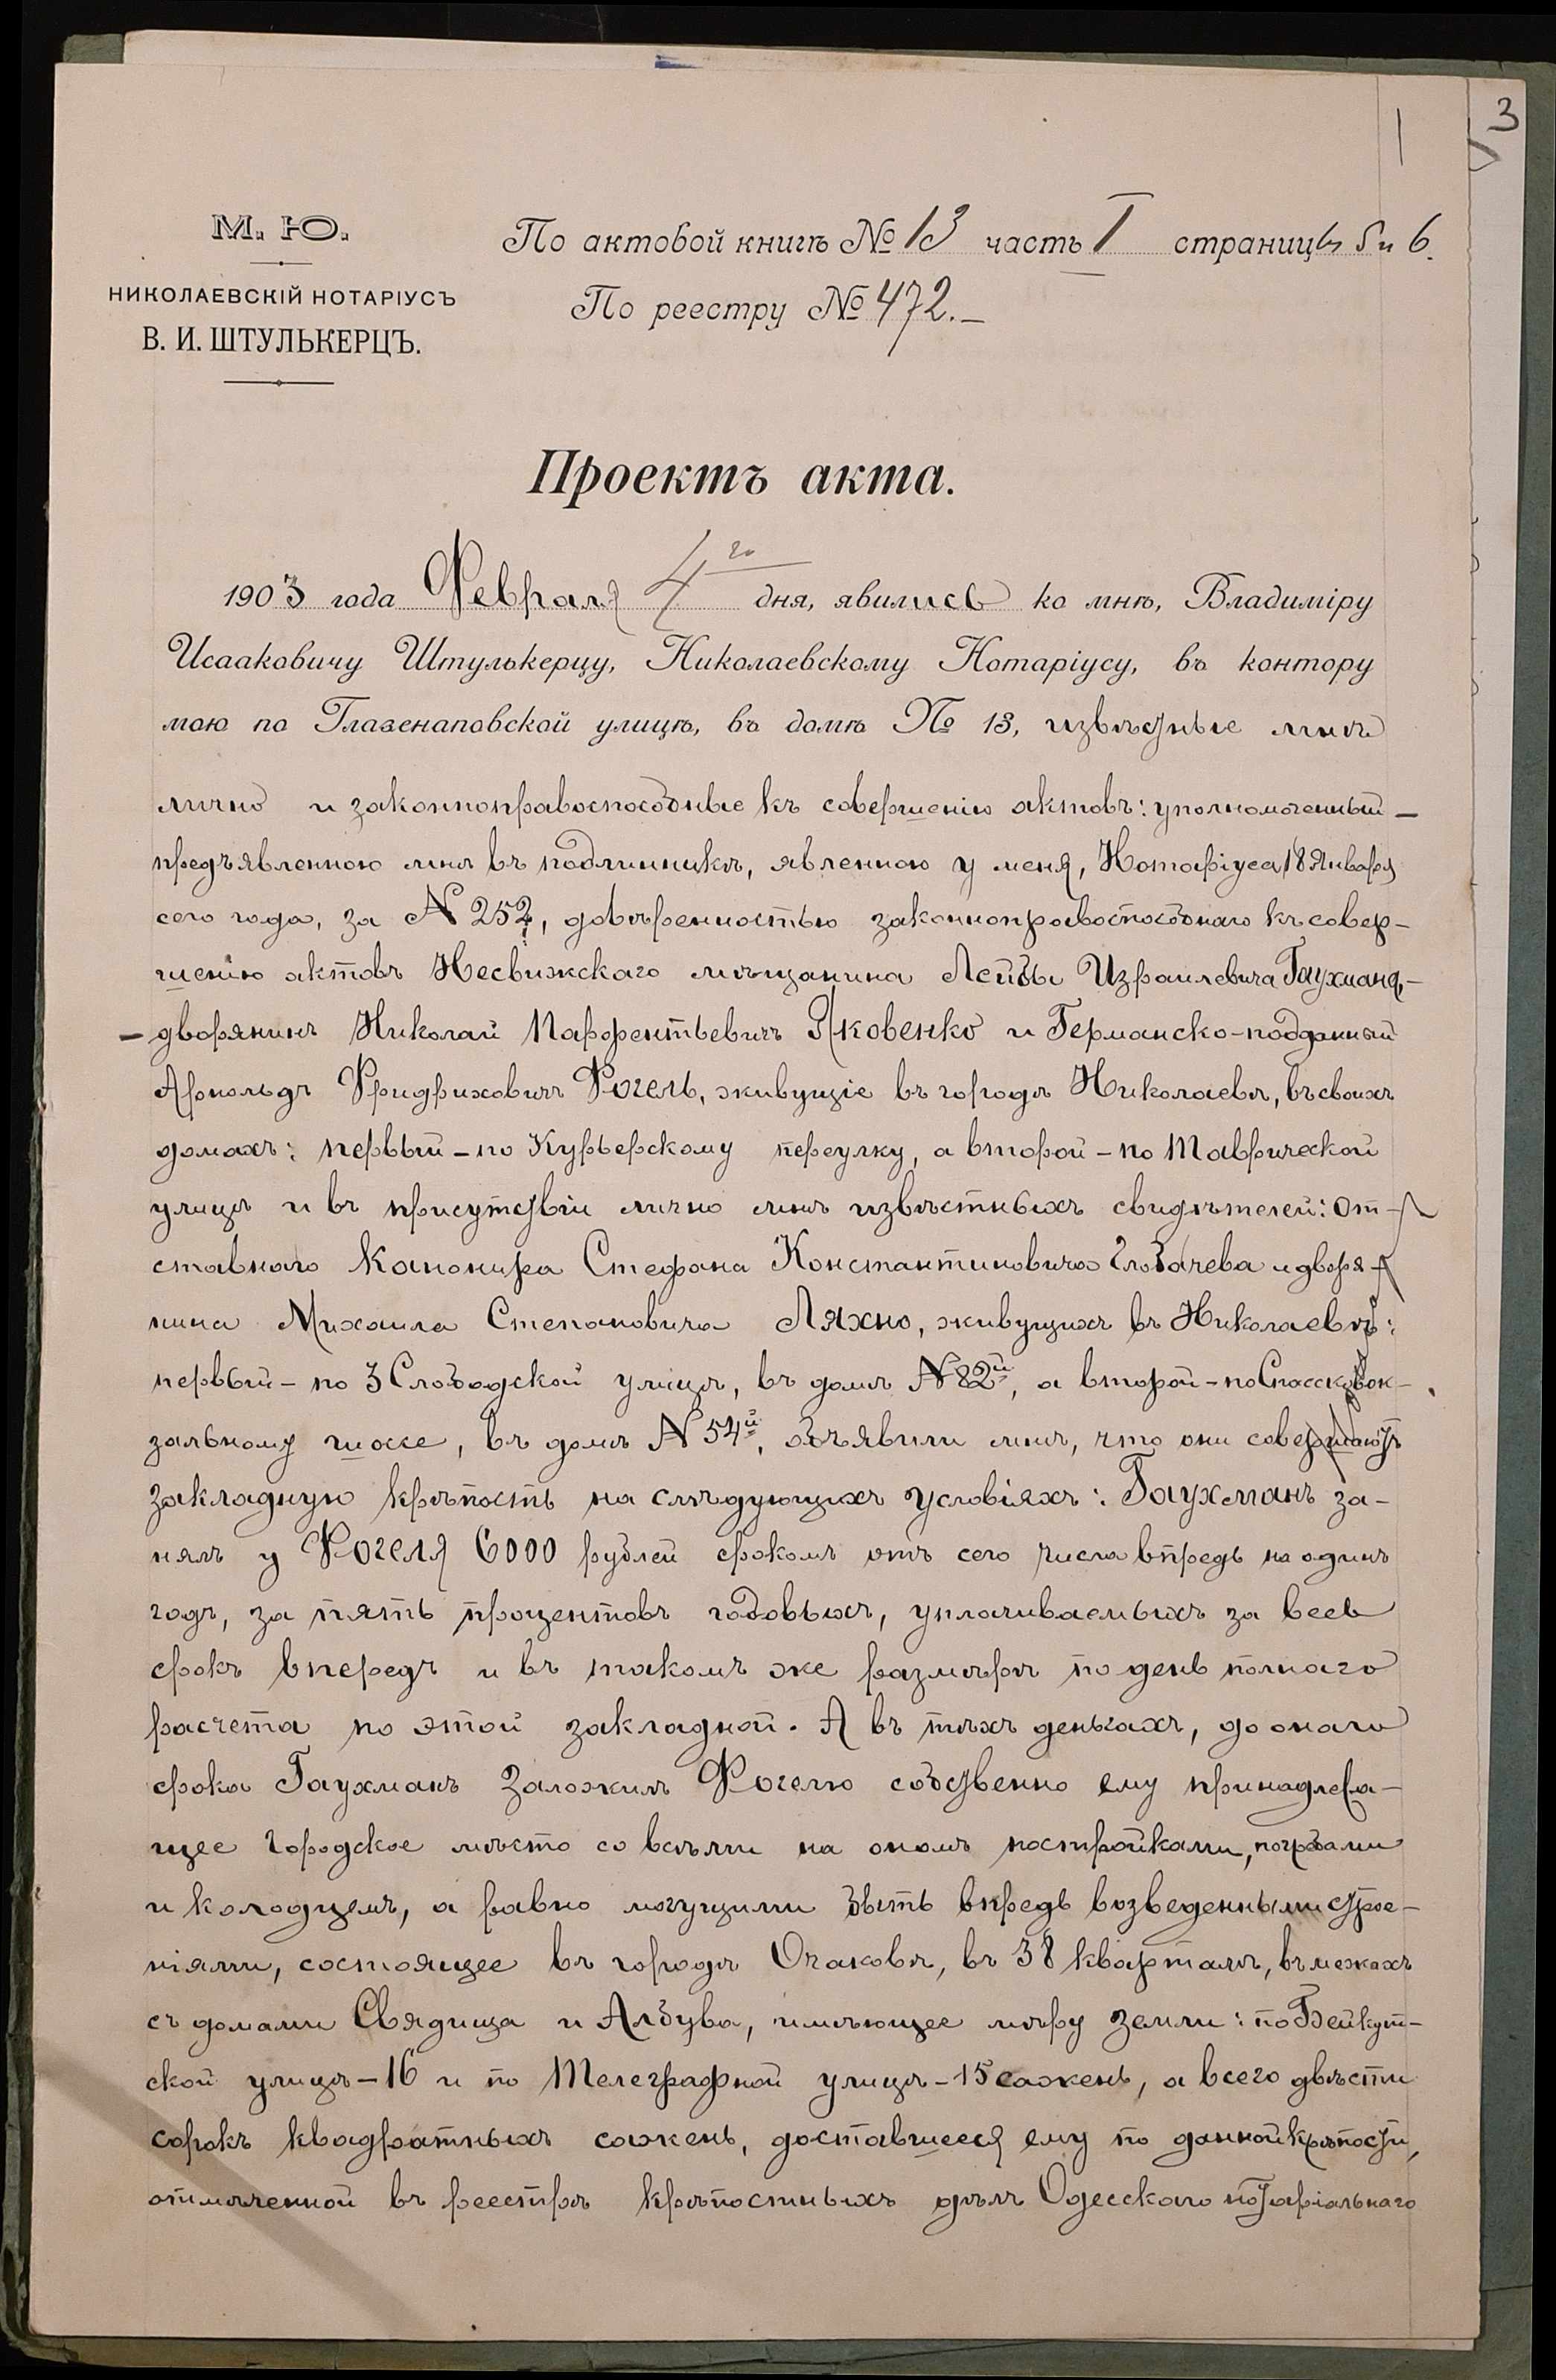 3
М. Ю.
НИКОЛАЕВСКІЙ НОТАРІУСЪ
В. И. ШТУЛЬКЕРЦЪ.
По актовой книгѣ № 13 часть I страницы 5 и 6.
По реестру № 472.—
Проектъ акта.
1903 года Февраля 4го дня, явились ко мнѣ, Владиміру
Исааковичу Штулькерцу, Николаевскому Нотаріусу, въ контору
мою по Глазенаповской улицѣ, въ домѣ № 13, извѣстные мнѣ
лично и законноправоспособные къ совершенію актовъ: уполномоченный —
предъявленною мнѣ въ подлинникѣ, явленною у меня, Нотаріуса, 18 Января
сего года, за N 252, довѣренностью законноправоспособнаго къ совер-
шенію актовъ Несвижскаго мѣщанина Лейбы Израилевича Гаухмана,—
— дворянинъ Николай Парфентьевичъ Яковенко и Германско-подданный
Арнольдъ Фридриховичъ Фогель, живущіе въ городѣ Николаевѣ, въ своихъ
домахъ: первый – по Курьерскому переулку, а второй – по Таврической
улицѣ и въ присутствіи лично мнѣ извѣстныхъ свидѣтелей: от-
ставного Канонира Стефана Константиновича Глобачева и дворя-
нина Михаила Степановича Ляхно, живущихъ въ Николаевѣ:
первый – по 3 Слободской улицѣ, въ домѣ N 82й, а второй – по Спасску вок-
зальному шоссе, въ домѣ N 54й, объявили мнѣ, что они совершаютъ
закладную крѣпость на слѣдующихъ условіяхъ: Гаухманъ за-
нялъ у Фогеля 6000 рублей срокомъ отъ сего числа впредь на одинъ
годъ, за пять процентовъ годовыхъ, уплачиваемыхъ за весь
срокъ впередъ и въ такомъ же размѣрѣ по день полнаго
расчета по этой закладной. А въ тѣхъ деньгахъ, до онаго
срока Гаухманъ заложилъ Фогелю собственно ему принадлежа-
щее городское мѣсто со всѣми на ономъ постройками, погребами
и колодцемъ, а равно могущими быть впредь возведенными строе-
ніями, состоящее въ городѣ Очаковѣ, въ 38 кварталѣ, въ межахъ
съ домами Свядища и Албува, имѣющее мѣру земли: по Бейкут-
ской улицѣ – 16 и по Телеграфной улицѣ – 15 сажень, а всего двѣсти
сорокъ квадратныхъ сажень, доставшееся ему по данной крѣпости,
отмѣченной въ реестрѣ крѣпостныхъ дѣлъ Одесскаго нотаріальнаго